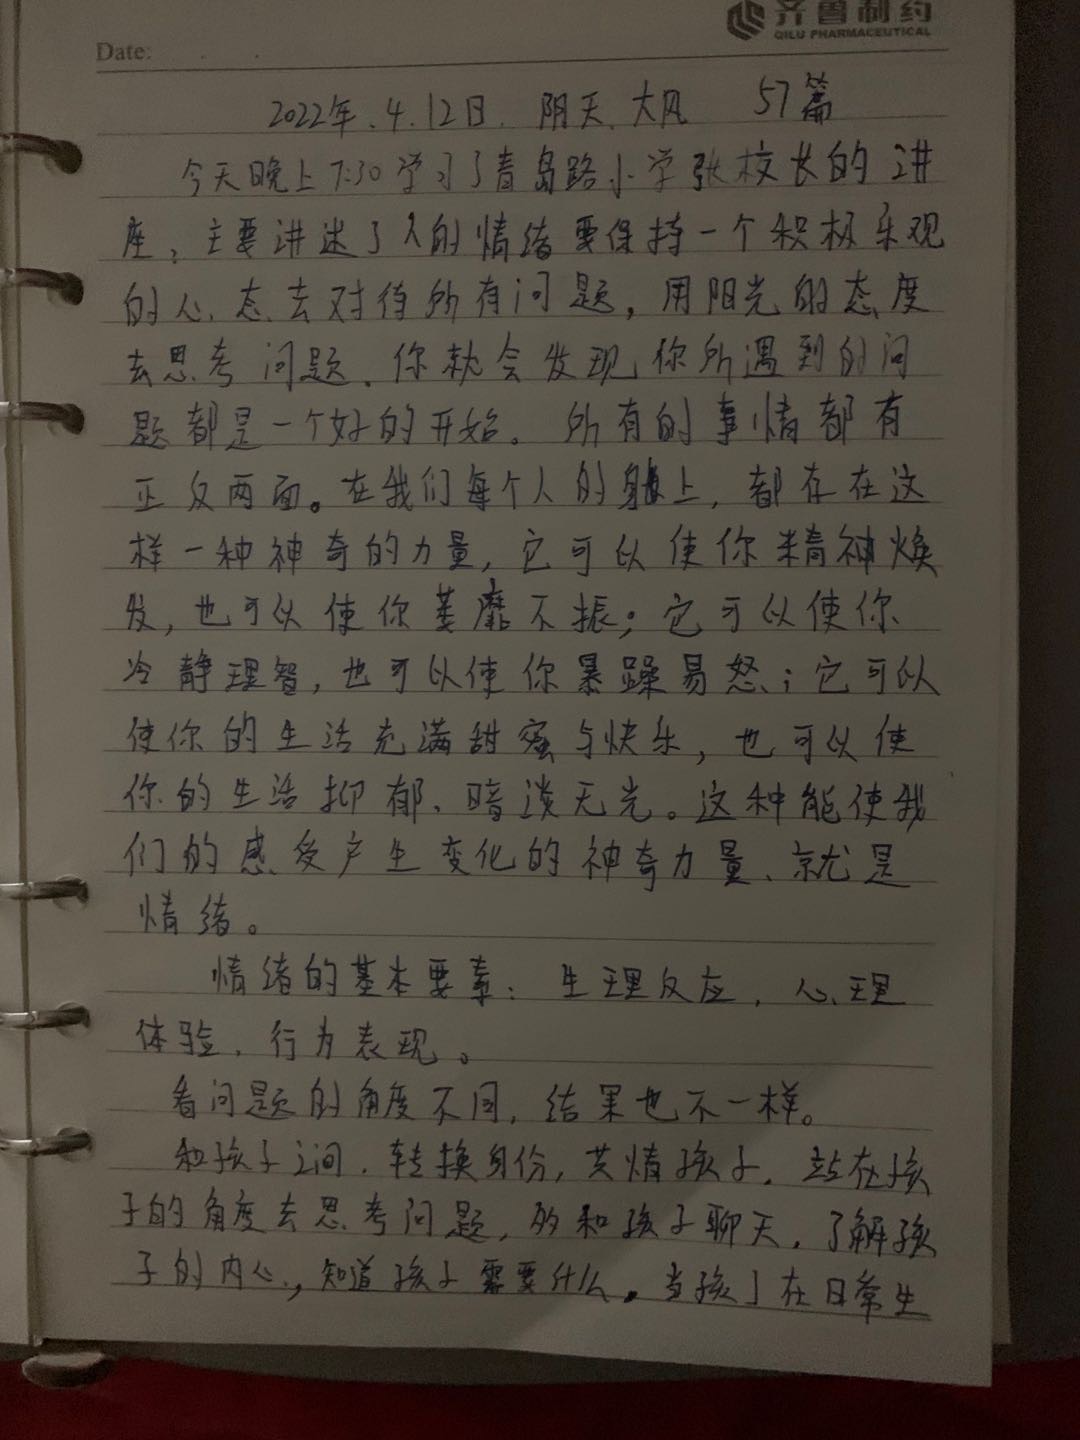 齐鲁制药
QILU PHARMACEUTICAL
Date:
2022年.4.12日. 阴天.大风 57篇
今天晚上7:30学习了青岛路小学张校长的讲
座，主要讲述了人的情绪要保持一个积极乐观
的心态去对待所有问题，用阳光的态度
去思考问题.你就会发现你所遇到的问
题都是一个好的开始。所有的事情都有
正反两面。在我们每个人的身上，都存在这
样一种神奇的力量，它可以使你精神焕
发，也可以使你萎靡不振；它可以使你
冷静理智，也可以使你暴躁易怒；它可以
使你的生活充满甜蜜与快乐，也可以使
你的生活抑郁、暗淡无光。这种能使我
们的感受产生变化的神奇力量、就是
情绪。
情绪的基本要素：生理反应，心理
体验、行为表现。
看问题的角度不同，结果也不一样。
和孩子之间.转换身份，共情孩子.站在孩
子的角度去思考问题，多和孩子聊天，了解孩
子的内心，知道孩子需要什么。当孩子在日常生